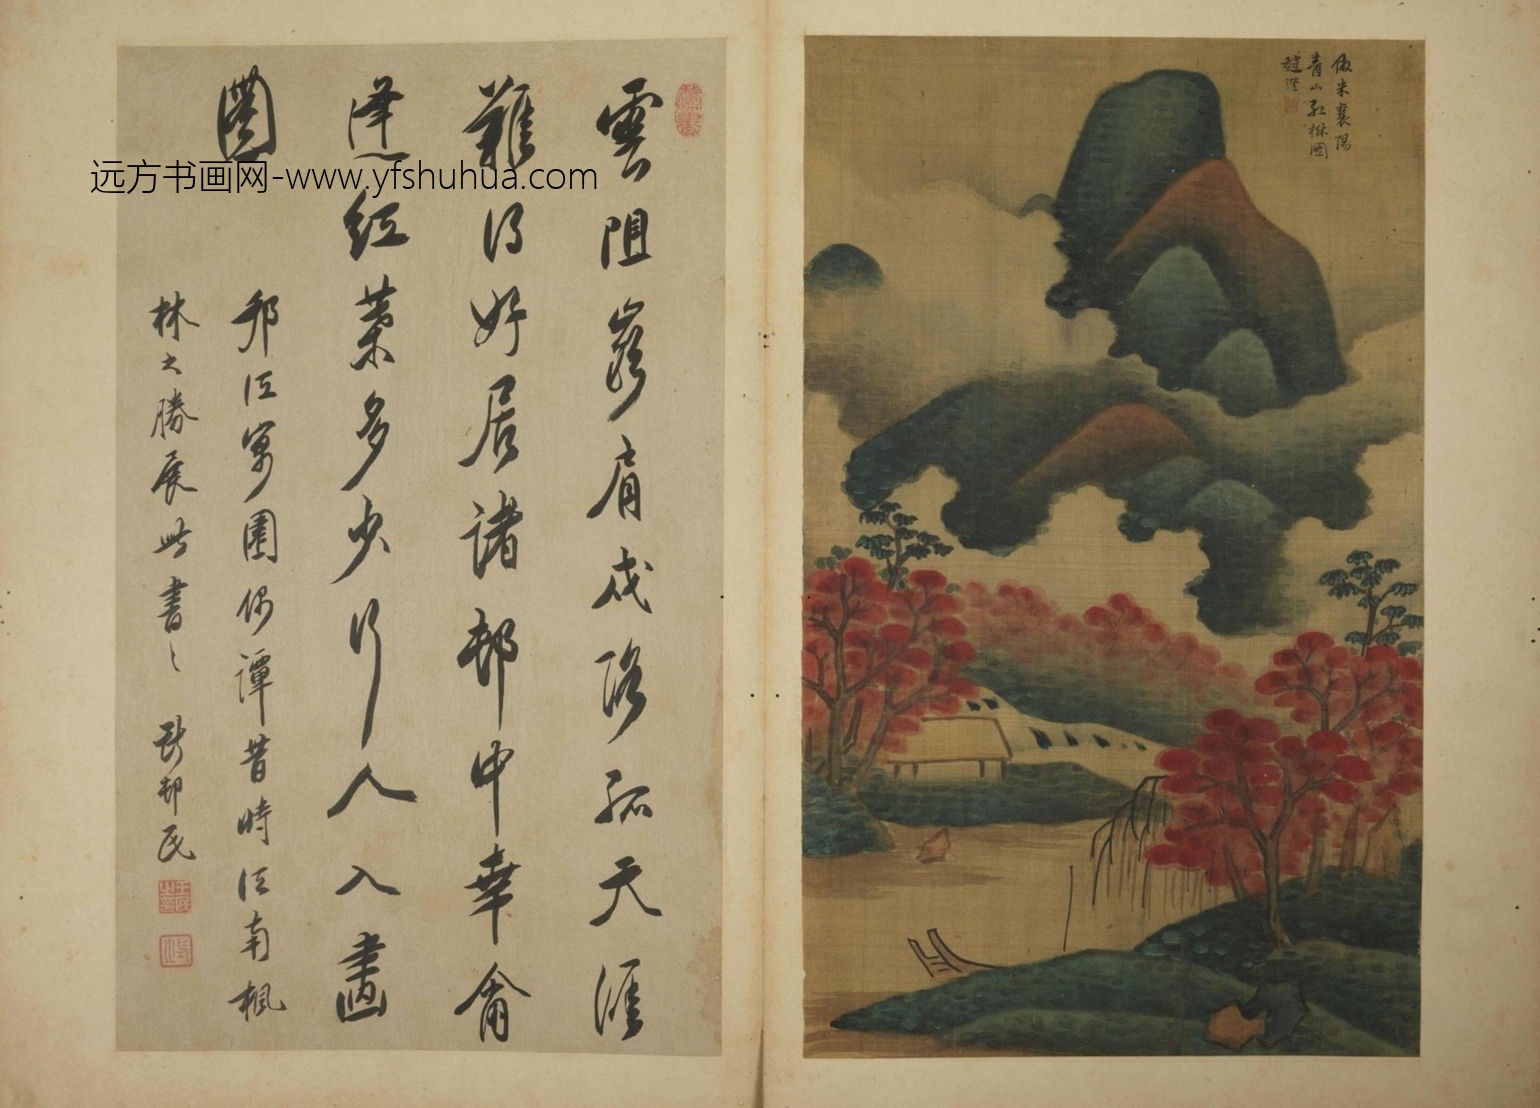 倣米襄陽
青山紅林圖
趙澄
雲阻嵩肩戍路孤天涯
難得好居諸邨中幸
逢紅葉多少行人入畫
圖
邗江寓園偶譚昔時江南楓
林之勝展此書之
邨民
远方书画网-www.yfshuhua.com